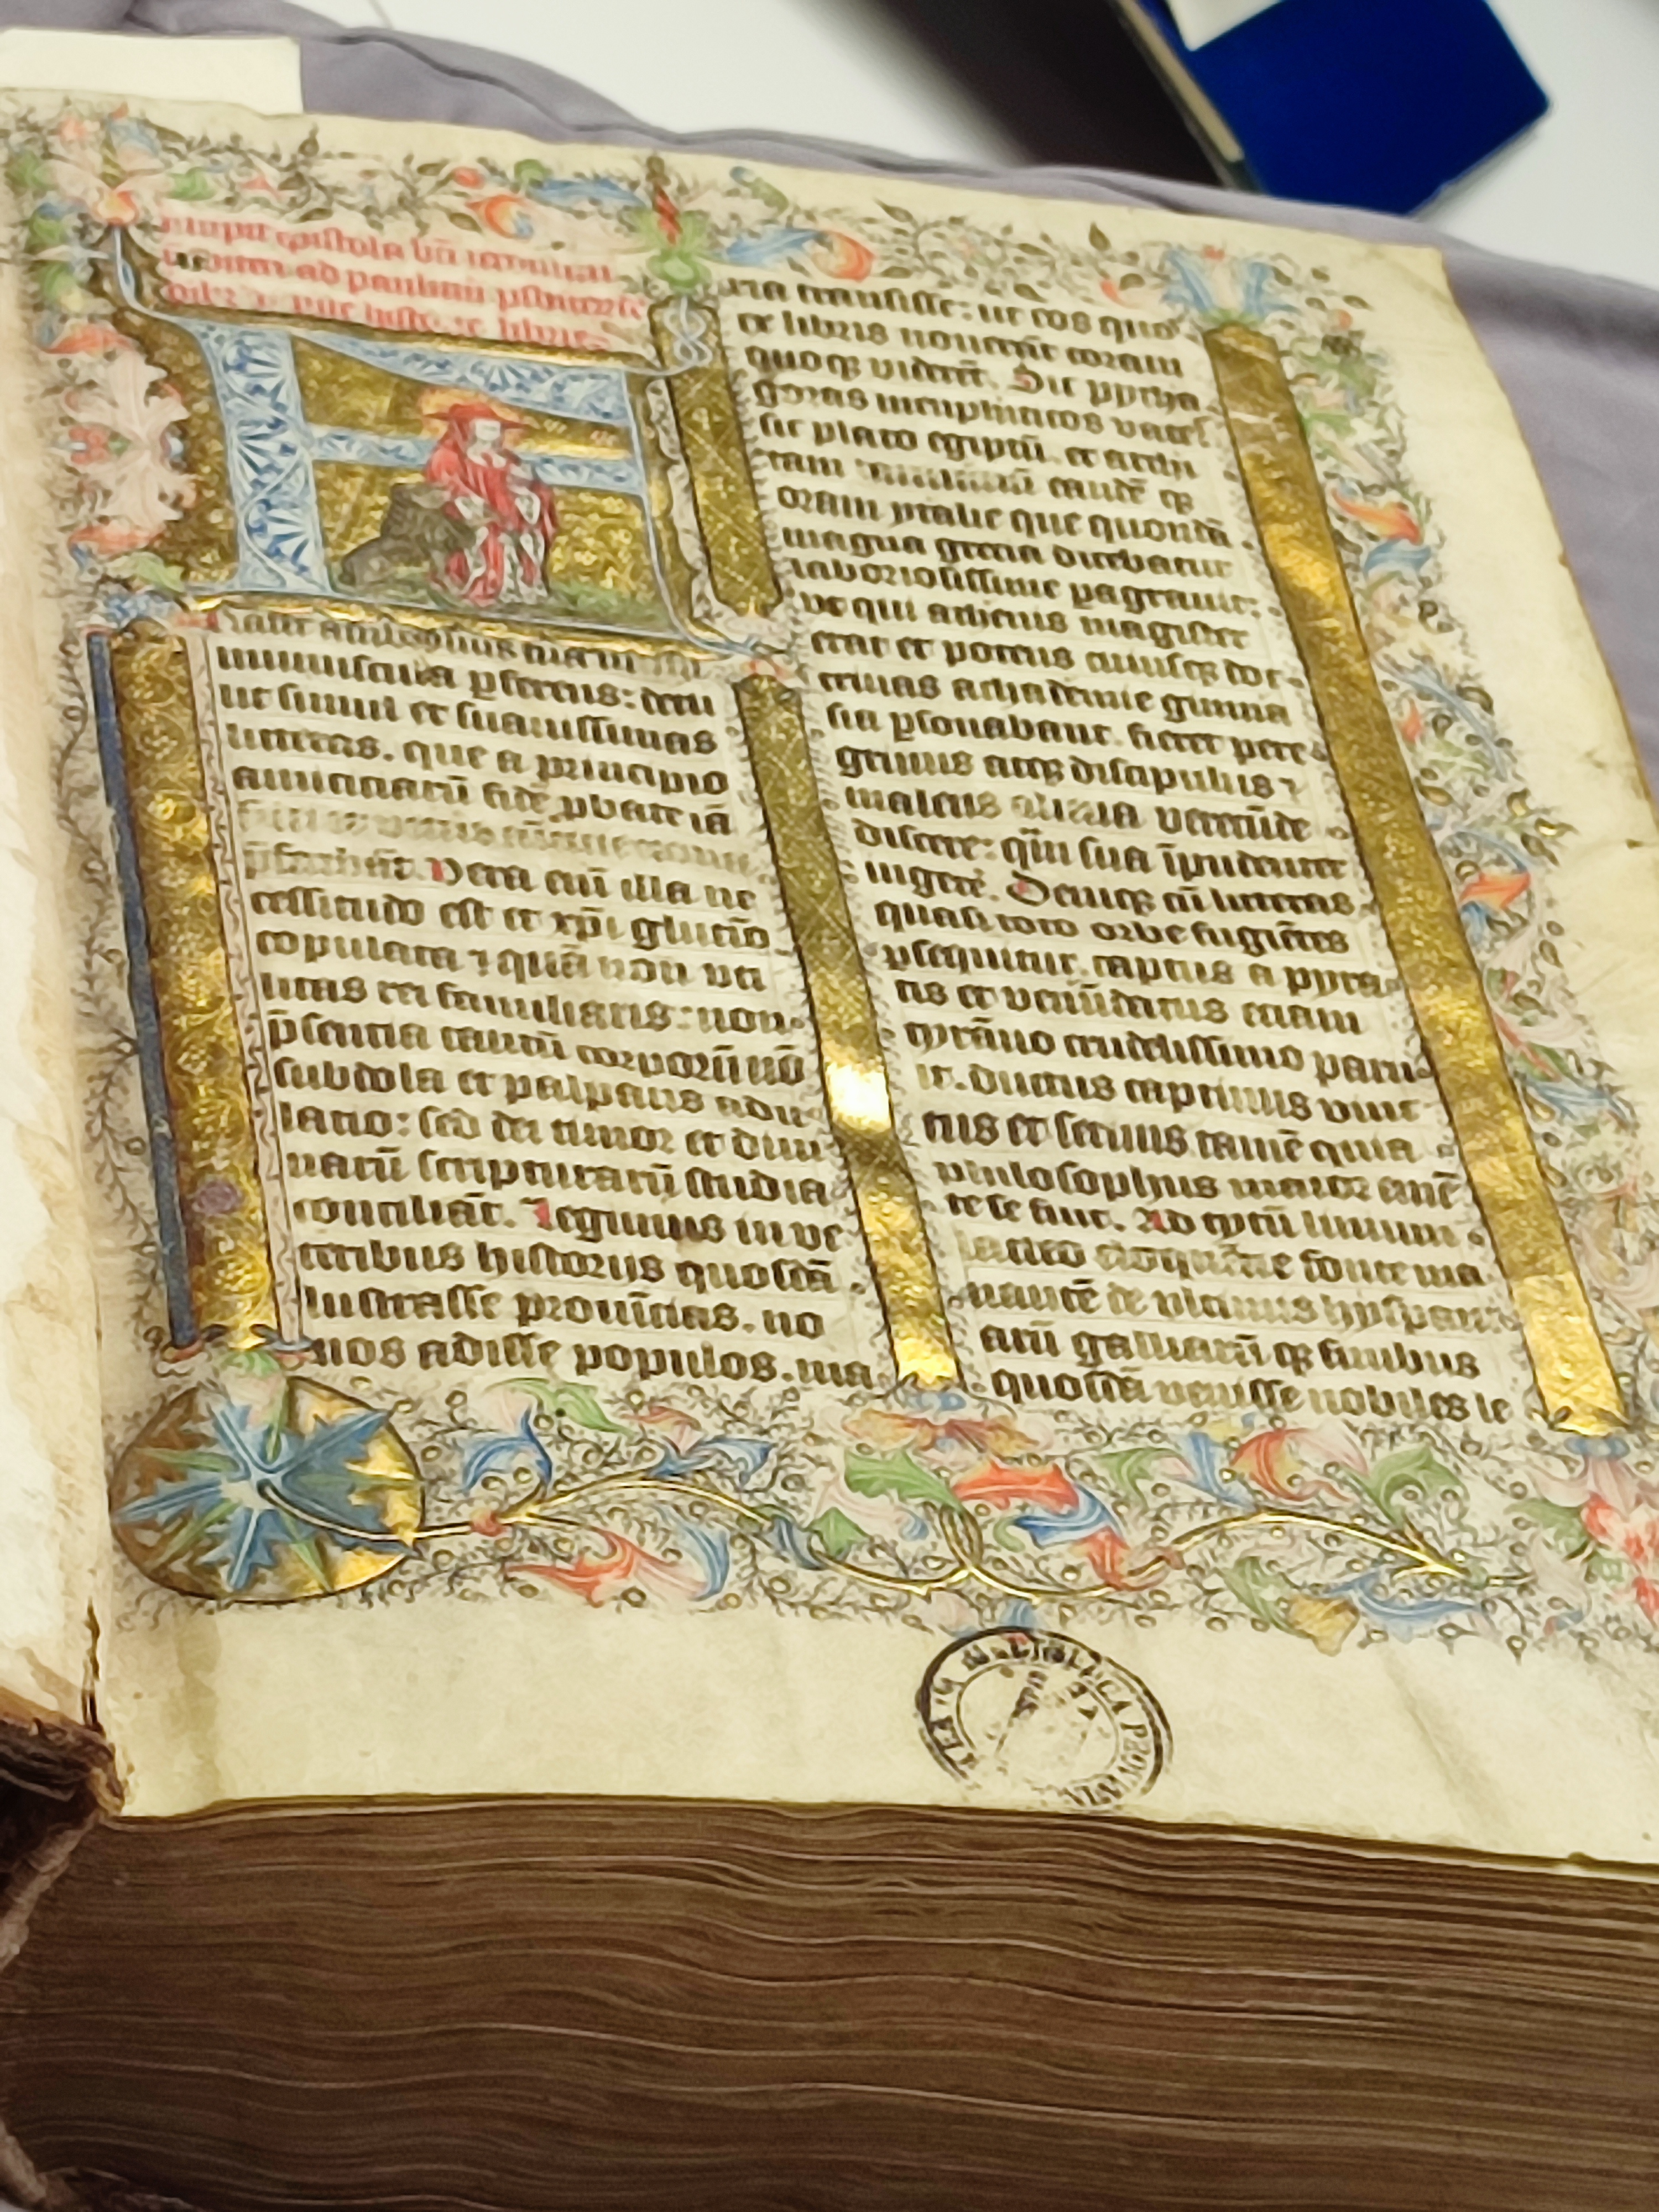 Incipit epistola bti ieronimi
ad paulinu psbiterū
de hystorie libris
Frater ambrosius
munuscula pferens: detu
lit simul et suauissimas
litteras. que a principio
amicitiarū fidē pbate iā
fidei et veteris
pferebāt. Vera eni illa ne
cessitudo est et xpi glutīo
copulata ⁊ quā non vti
litas rei familiaris: non
p̄sentia tantū corporū nō
subdola et palpans adu
latio: sed dei timor et diui
narū scripturarū studia
conciliāt. Legimus in ve
teribus historijs quosdā
lustrasse prouīcias. no
uos adisse populos. ma
ria transisse: ut eos quos
ex libris nouerāt coram
quoqꝫ viderēt. Sic pytha
goras memphiticos vates
sic plato egiptū. et archi
tam tarentinū eandē qꝫ
oram ytalie que quondā
magna grecia dicebatur
laboriosissime pagrauit:
vt qui athenis magister
erat et potens cuiusqꝫ doc
trinas achademie gimna
sia psonabant. fieret pere
grinus atqꝫ discipulus ⁊
malens aliena verecūde
discere: q̄m sua īpudenter
ingere. Deniqꝫ cū litteras
quasi toto orbe fugiētes
psequitur. captus a pyra
tis et venūdatus etiam
tyrāno crudelissimo paru
it. ductus captiuus vinc
tus et seruus tamē quia
philosophus maior emē
te se fuit. Ad tytū liuium
lacteo eloquētie fonte ma
nantē de vltimis hyspani
arū galliarū qꝫ finibus
quosdā venisse nobiles le
BIBLIOTECA PROVINCIAL